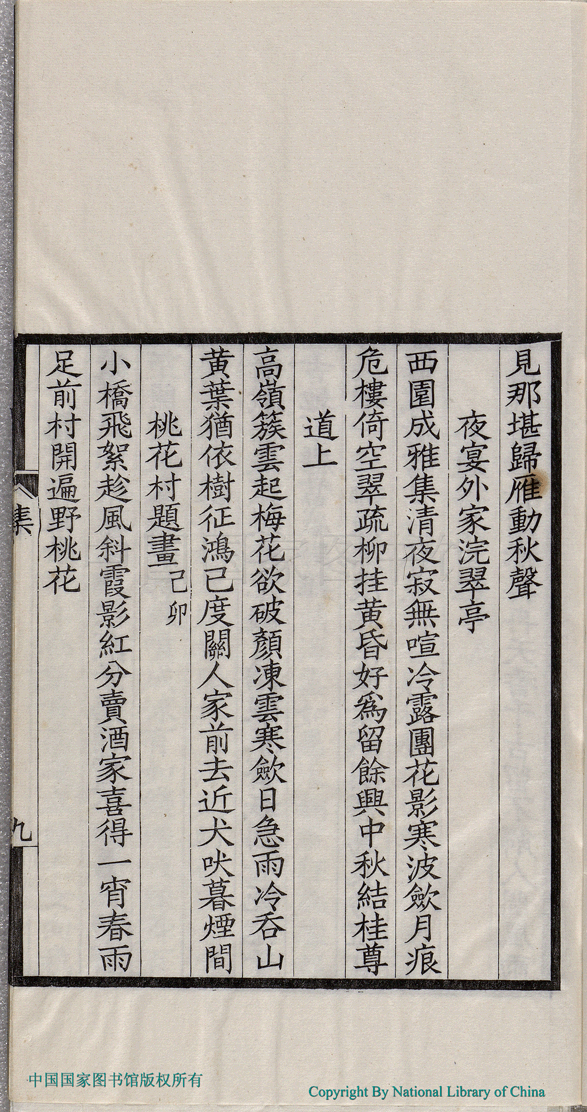 見那堪歸雁動秋聲
夜宴外家浣翠亭
西園成雅集清夜寂無喧冷露團花影寒波歛月痕
危樓倚空翠疏柳挂黄昏好爲留餘興中秋結桂尊
道上
高嶺簇雲起梅花欲破顏凍雲寒歛日急雨冷呑山
黄葉猶依樹征鴻已度關人家前去近犬吠暮煙間
桃花村題畫己卯
小橋飛絮趁風斜霞影紅分賣酒家喜得一宵春雨
足前村開遍野桃花
集
九
中国国家图书馆版权所有
Copyright By National Library of China